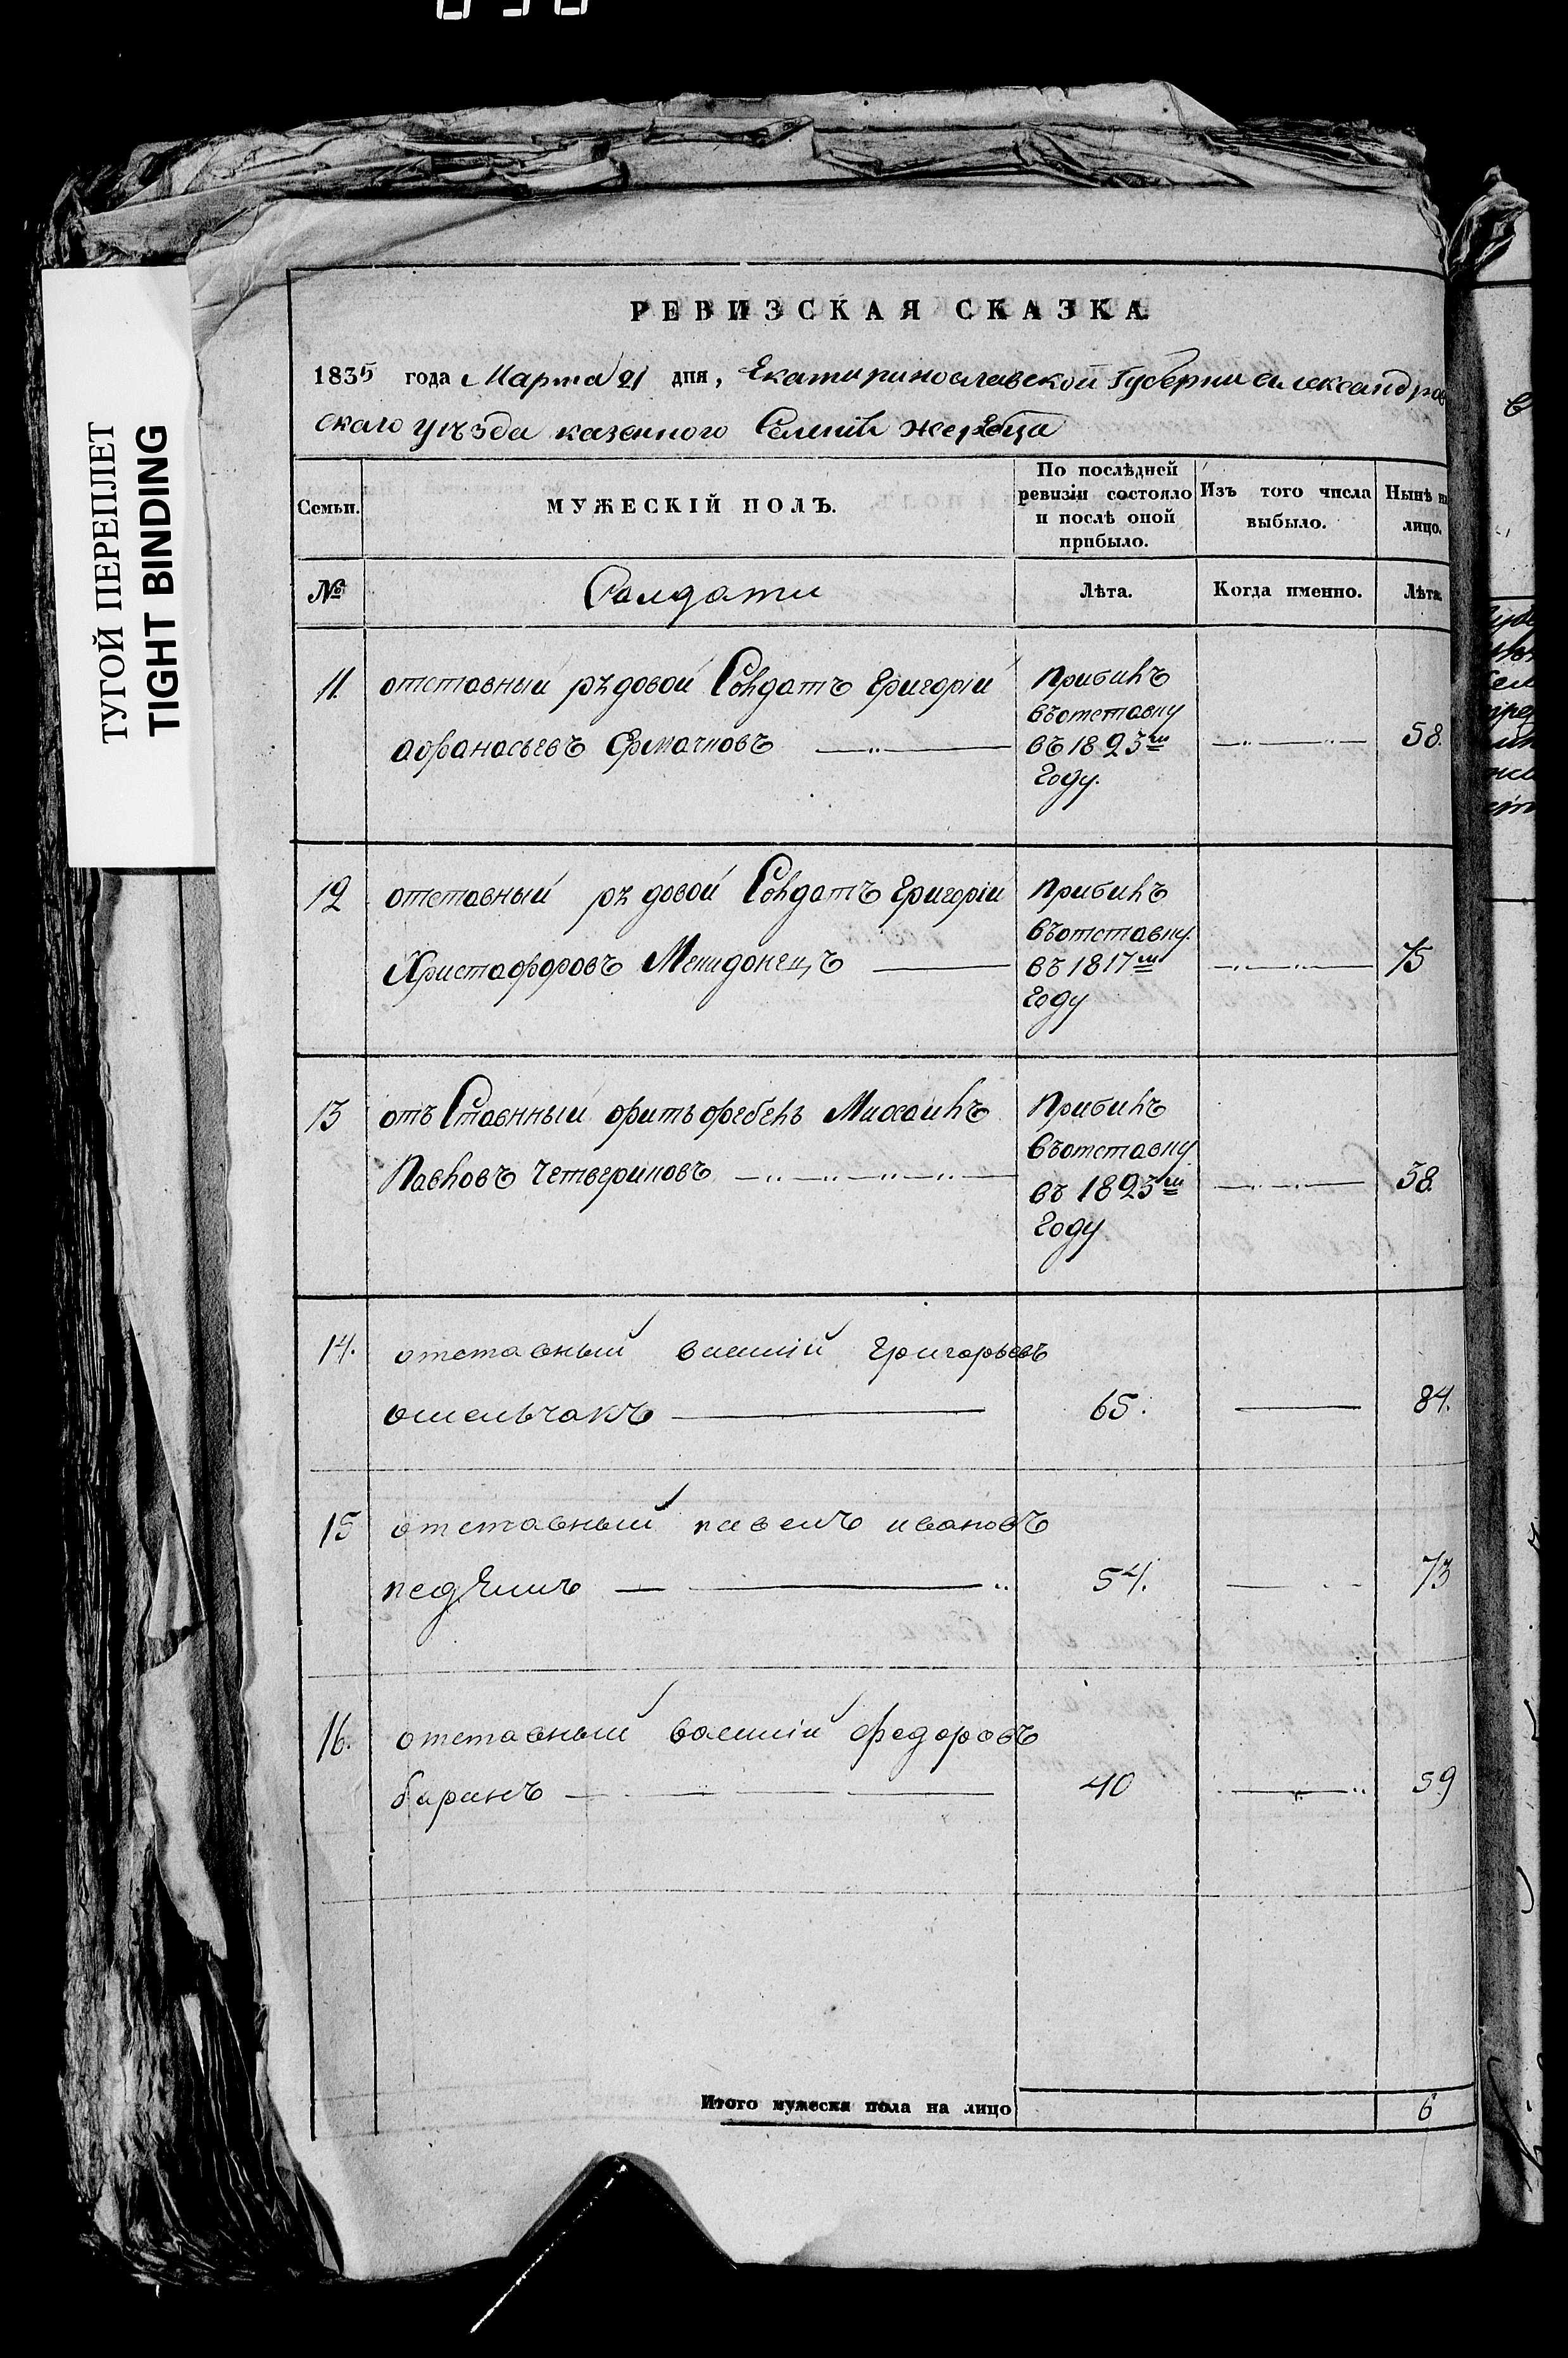 ТУГОЙ ПЕРЕПЛЕТ
TIGHT BINDING
РЕВИЗСКАЯ СКАЗКА.
1835 года Марта 21 дня, Екатиринославской Губерни александров
скаго уѣзда казенного Селенія Жеребца
Семьи.
МУЖЕСКІЙ ПОЛЪ.
По послѣдней
ревизіи состояло
и послѣ оной
прибыло.
Изъ того числа
выбыло.
Нынѣ на
лицо.
№
Солдати
Лѣта.
Когда именно.
Лѣта.
11. отставный рядовой Солдатъ Григорій Прибилъ
въотставку
афанасьевъ Ермачковъ въ 1823м 58.
Году.
12 отставный рядовой Солдатъ Григорій Прибилъ
въотставку.
Христафоровъ въ 1817м 75
Году
13 отъ Ставнный фитьфебель Михаилъ Прибилъ
въотставку
Павловъ Четвериковъ въ 1823м 58.
Году
14. отставный василій Григорьевъ
омельчакъ 65. 84.
15 отставный павелъ ивановъ
54. 73
16. отставный василій федоровъ
баранъ 40 59
Итого мужеска пола на лицо 6